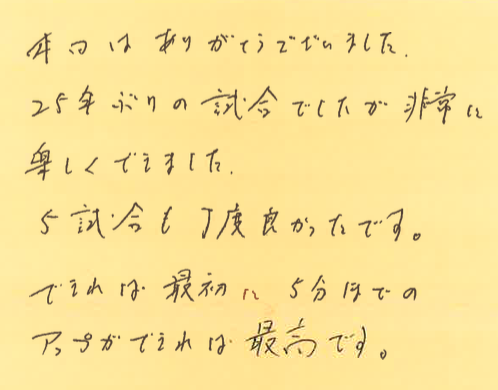 本日はありがとうございました.
25年ぶりの試合でしたが非常に
楽しくできました.
5試合も丁度良かったです。
できれば最初に5分ほどの
アップができれば最高です。